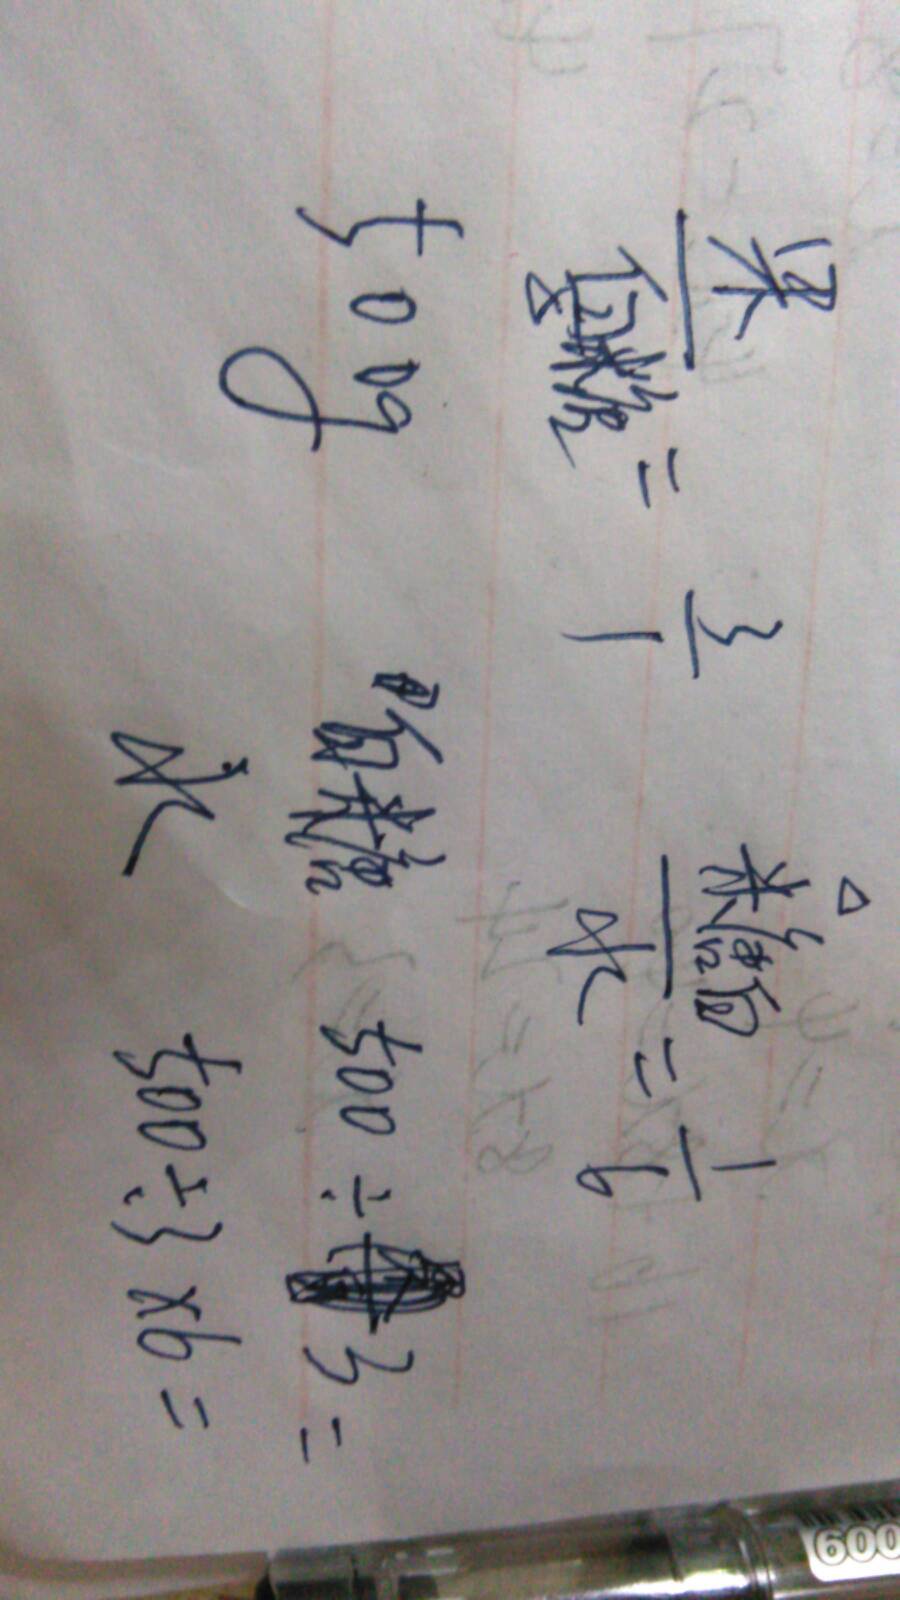 果/白糖 = 3/1 糖/水 = 1/6
500g 白糖 500÷3=
水 500÷3×6=
600